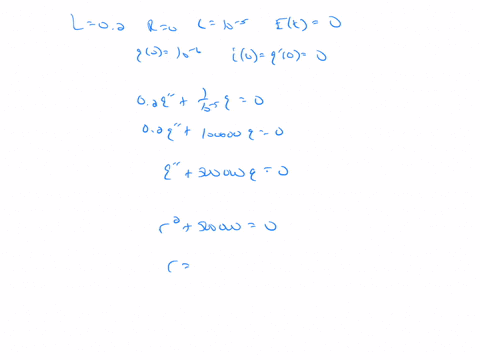 L=0.2 R=0 C=10⁻⁵ E(t)=0
q(0)=10⁻⁶ i(0)=q'(0)=0
0.2q''+ 1/10⁻⁵ q=0
0.2q''+100000q=0
q''+500000q=0
r²+500000=0
r=